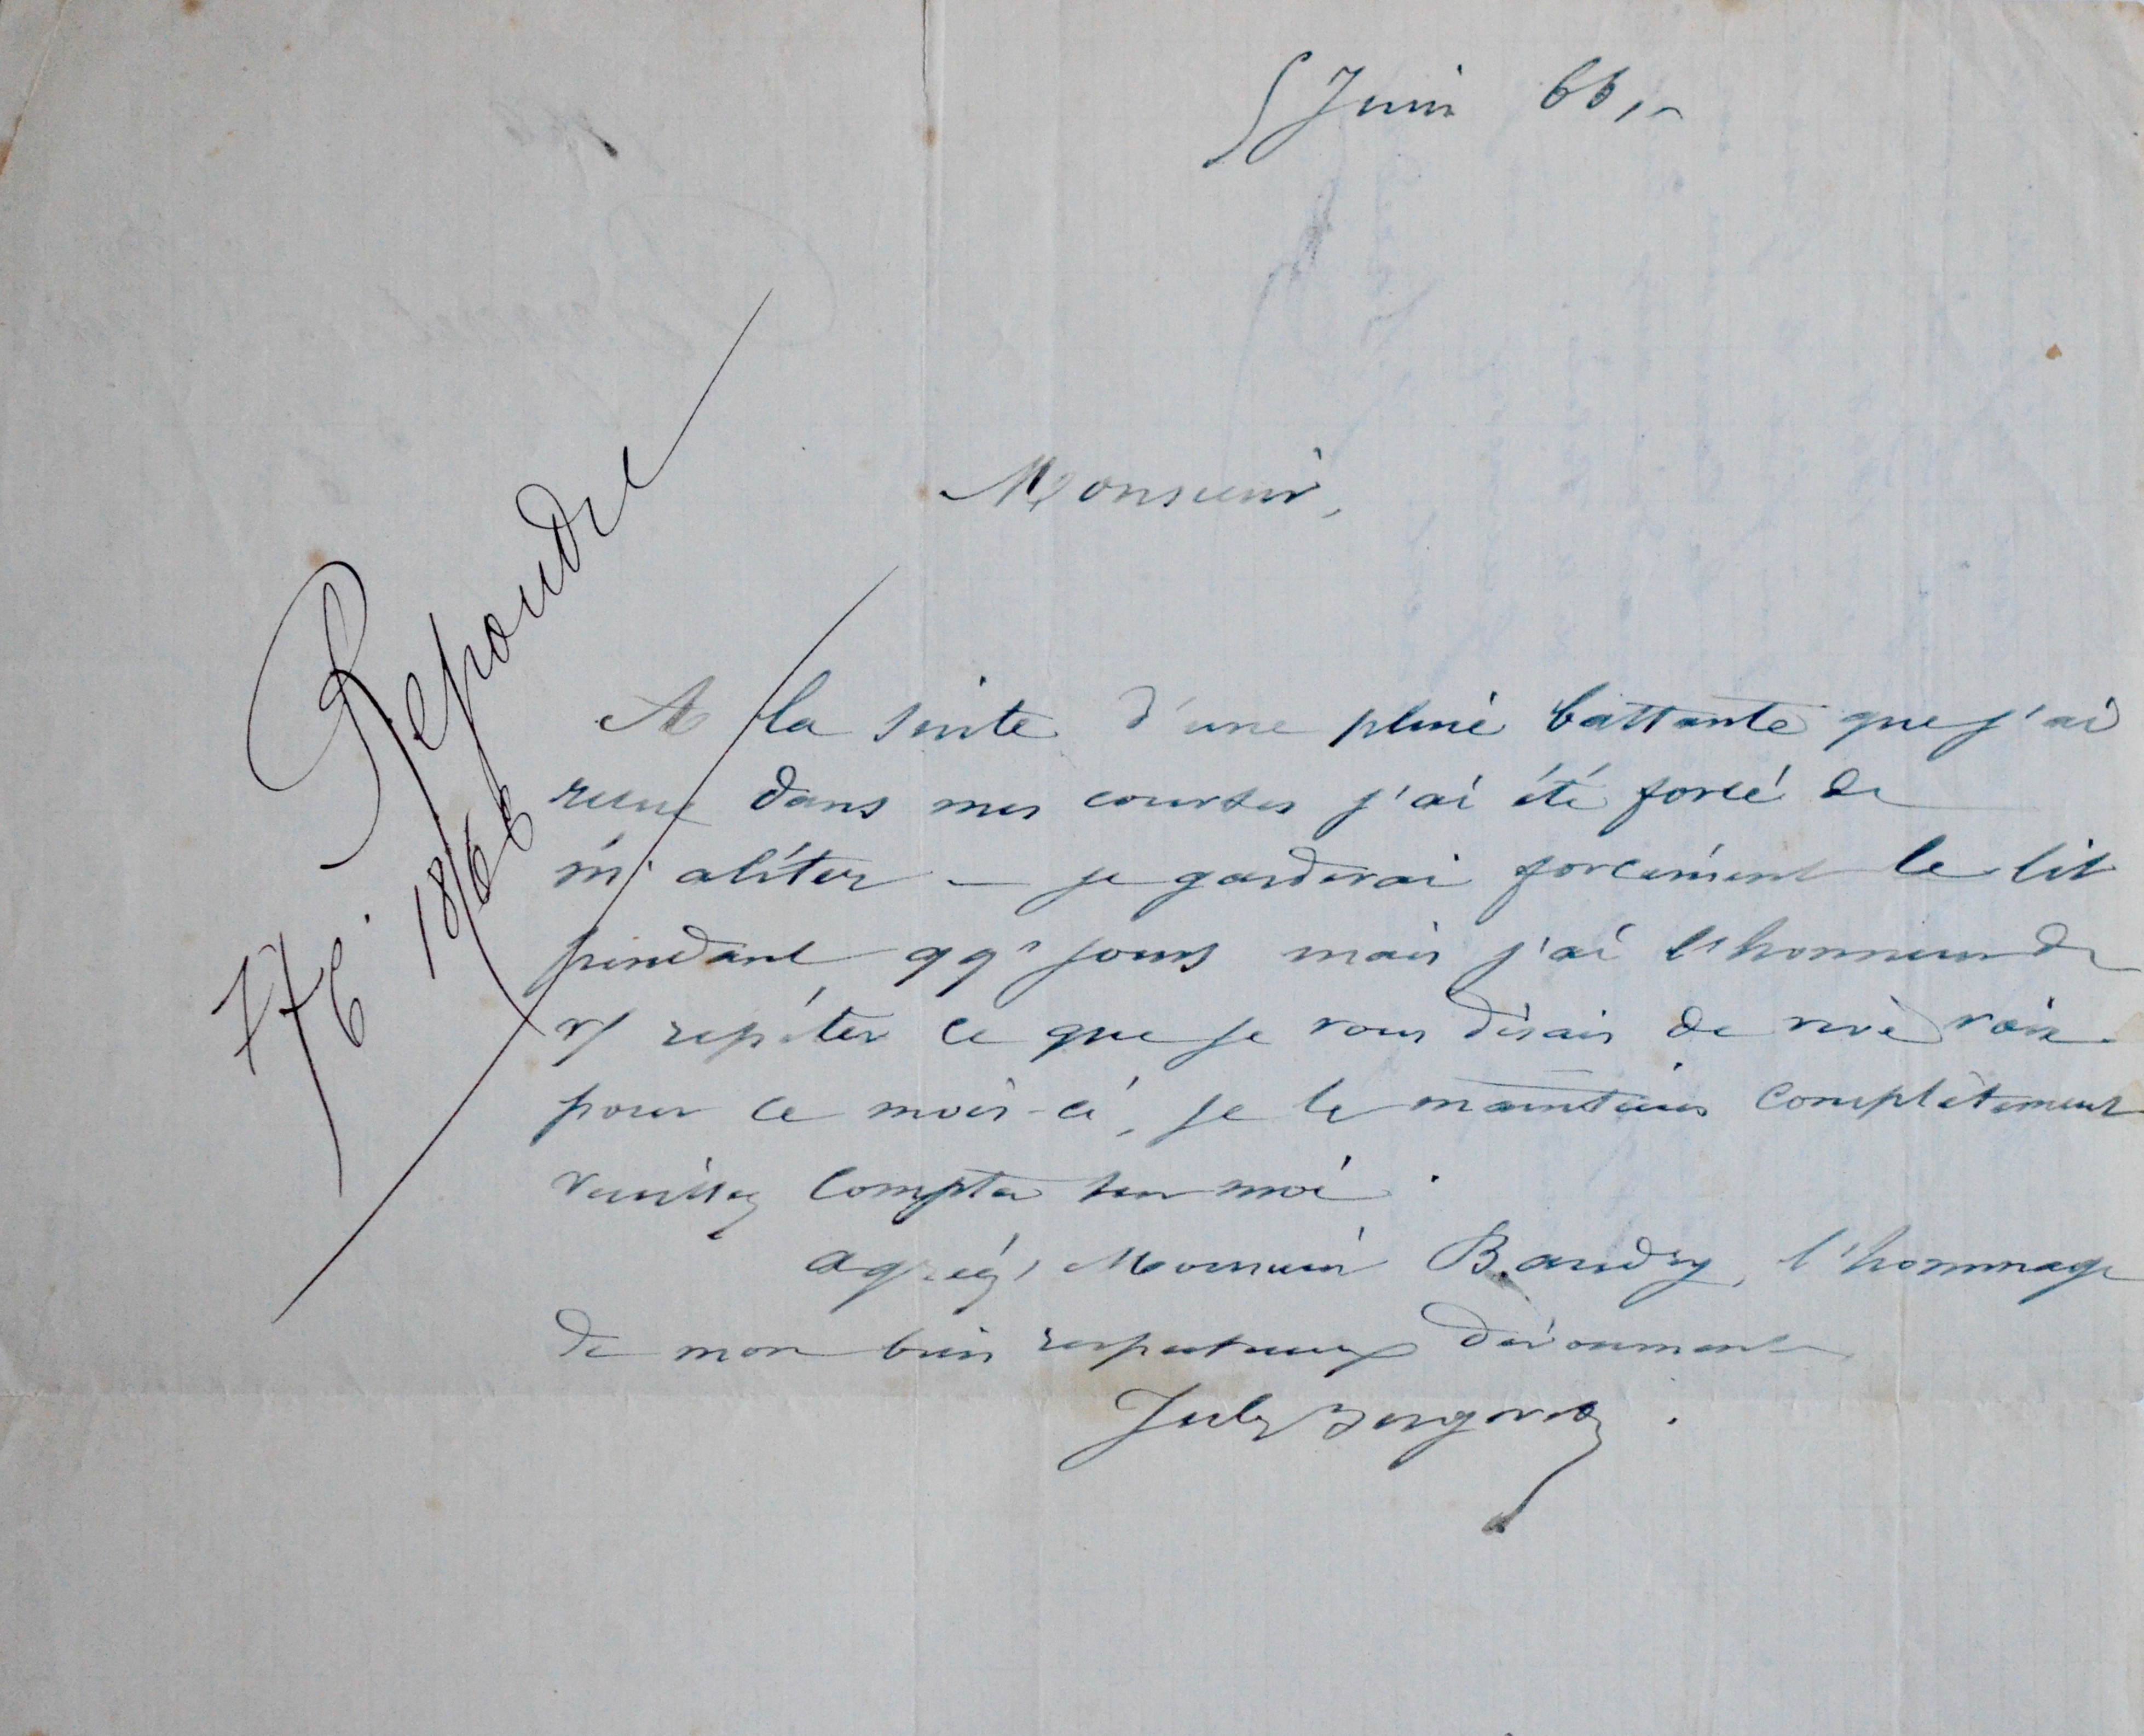 5 Juin 66
Monsieur,
Repondre
7/6. 1866
A la suite d'une pluie battante que j'ai
reçue dans mes courses j'ai été forcé de
m'aliter – je garderai forcément le lit
pendant qqs jours mais j'ai l'honneur de
v/ repéter ce que je vous disais de vive voix
pour ce mois-ci, je le maintiens complètement
veuillez compter sur moi.
agréez, Monsieur Baudry, l'hommage
de mon bien respectueux dévoument
Jules